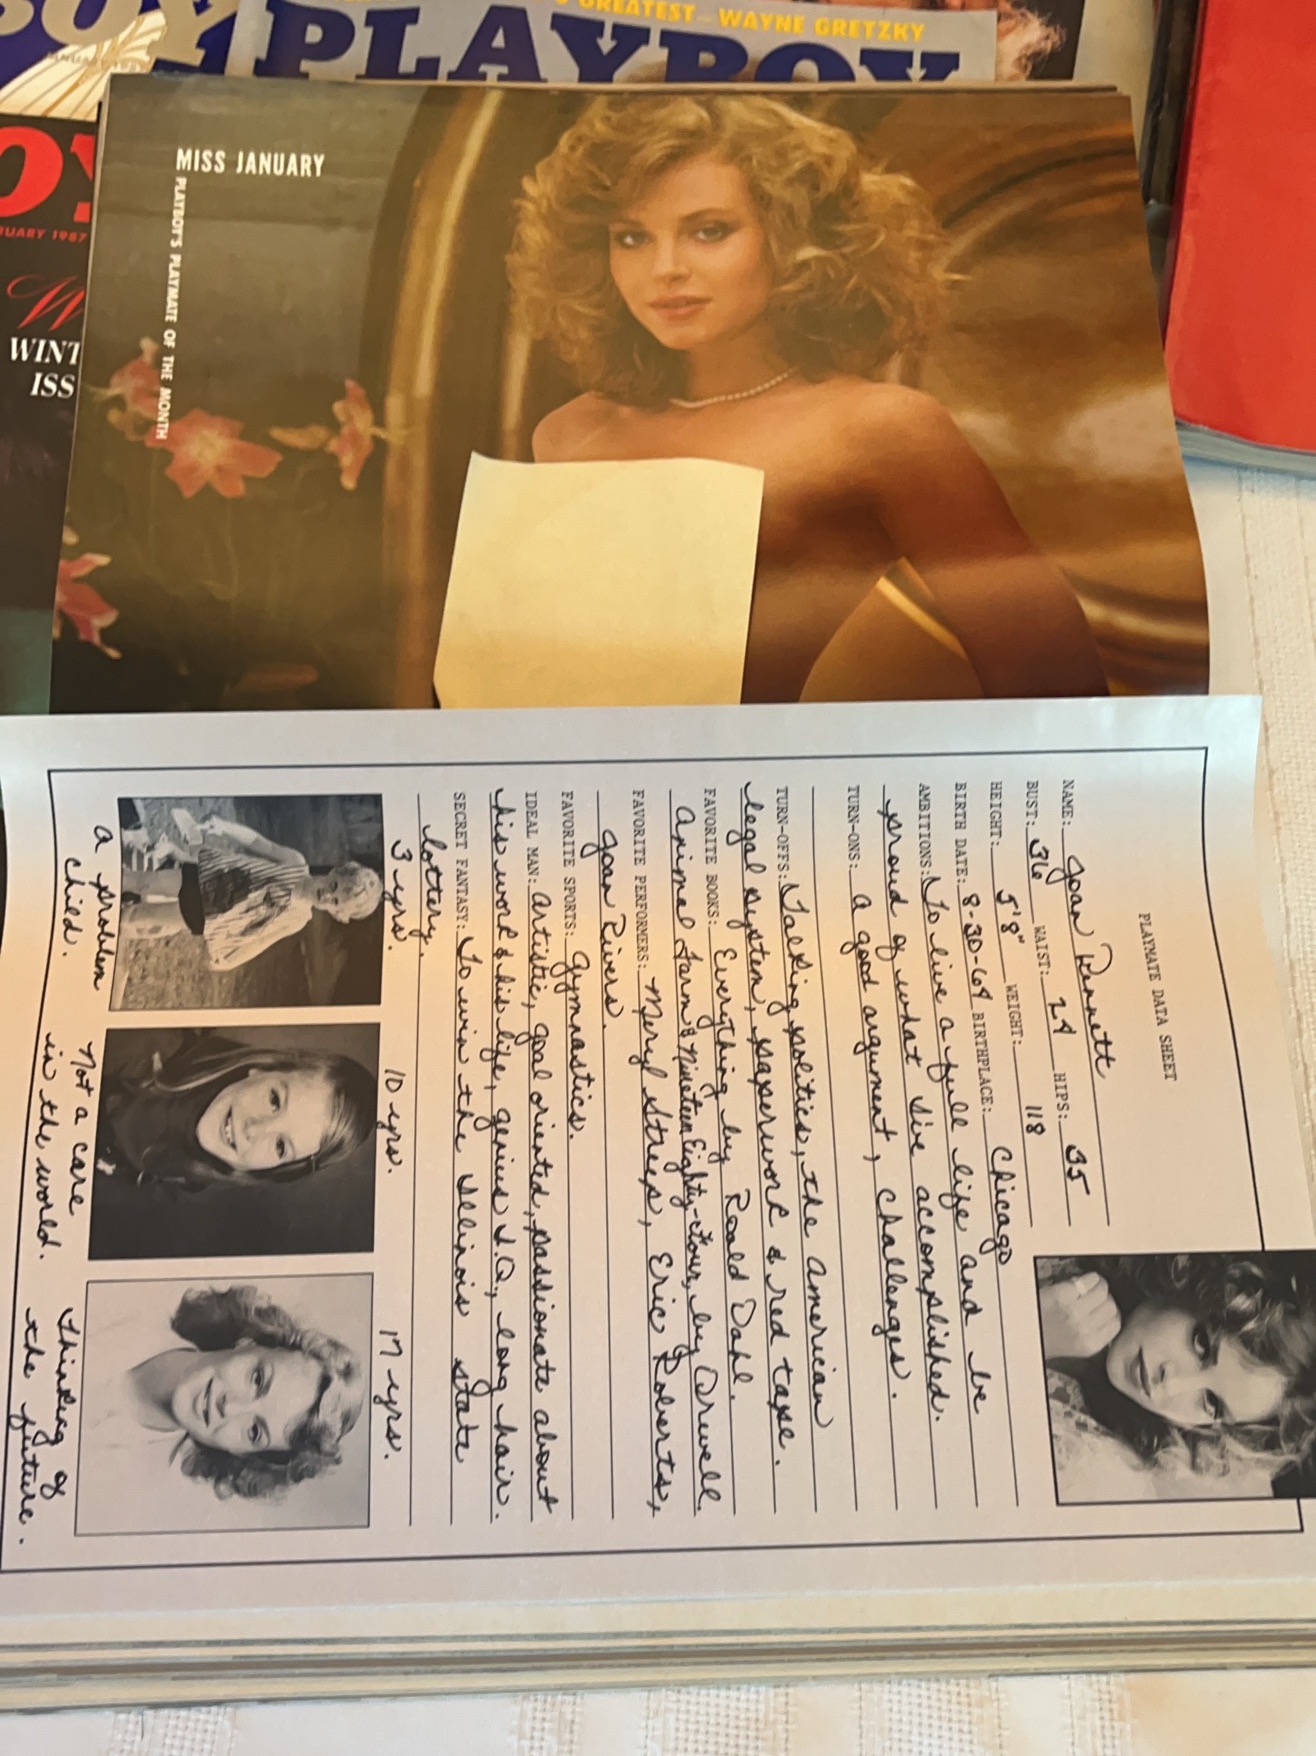 GREATEST– WAYNE GRETZKY
PLAYBOY
JANUARY 1987
WINT
ISS
MISS JANUARY
PLAYBOY'S PLAYMATE OF THE MONTH
PLAYMATE DATA SHEET
NAME: Joan Bennett
BUST: 36 WAIST: 24 HIPS: 35
HEIGHT: 5'8" WEIGHT: 118
BIRTH DATE: 8-30-64 BIRTHPLACE: Chicago
AMBITIONS: To live a full life and be
proud of what I've accomplished.
TURN-ONS: A good argument, challenges.
TURN-OFFS: Talking politics, the American
legal system, paperwork & red tape.
FAVORITE BOOKS: Everything by Roald Dahl.
Animal Farm & Nineteen Eighty-Four, by Orwell.
FAVORITE PERFORMERS: Meryl Streep, Eric Roberts,
Joan Rivers.
FAVORITE SPORTS: Gymnastics.
IDEAL MAN: Artistic, goal oriented, passionate about
his work & his life, genius I.Q., long hair.
SECRET FANTASY: To win the Illinois state
lottery.
3 yrs. 10 yrs. 17 yrs.
A problem child.
Not a care in the world.
Thinking of the future.